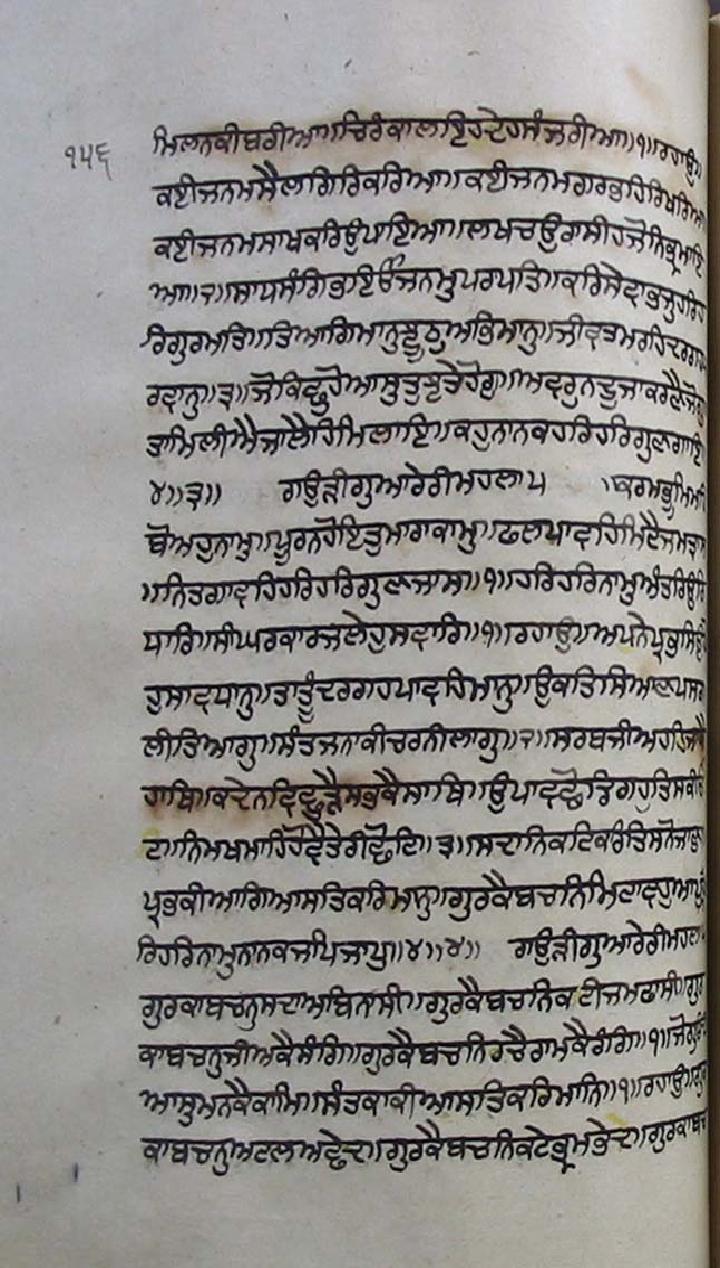 ੧੫੬
ਮਿਲਨਕੀਬਰੀਆ॥ਚਿਰੰਕਾਲਇਹਦੇਹਸੰਜਰੀਆ॥੧॥ਰਹਾਉ॥
ਕਈਜਨਮਸੈਲਗਿਰਿਕਰਿਆ॥ਕਈਜਨਮਗਰਭਹਿਰਿਖਰਿਆ
ਕਈਜਨਮਸਾਖਕਰਿਉਪਾਇਆ॥ਲਖਚਉਰਾਸੀਹਜੋਨਿਭ੍ਰਮਾਇ
ਆ॥੨॥ਸਾਧਸੰਗਿਭਇਓਜਨਮੁਪਰਪਤਿ॥ਕਰਿਸੇਵਾਭਜੁਹਰਿਹ
ਰਿਗੁਰਮਤਿ॥ਤਿਆਗਿਮਾਨੁਝੂਠੁਅਭਿਮਾਨੁ॥ਜੀਵਤਮਰਹਿਦਰਗਹਪ
ਰਵਾਨੁ॥੩॥ਜੋਕਿਛੁਹੋਆਸੁਤੁਝਤੇਹੋਗੁ॥ਅਵਰੁਨਦੂਜਾਕਰਣੈਜੋਗੁ
ਤਾਮਿਲੀਐਜਾਲੈਹਿਮਿਲਾਇ॥ਕਹੁਨਾਨਕਹਰਿਹਰਿਗੁਣਗਾਇ
੪॥੩॥ ਗਉੜੀਗੁਆਰੇਰੀਮਹਲਾ੫ ॥ਕਰਮਭੂਮਿਮਹਿ
ਬੋਅਹੁਨਾਮੁ॥ਪੂਰਨਹੋਇਤੁਮਾਰਾਕਾਮੁ॥ਫਲਪਾਵਹਿਮਿਟੈਜਮਤ੍ਰਾਸ
॥ਨਿਤਗਾਵਹਿਹਰਿਹਰਿਗੁਣਜਾਸ॥੧॥ਹਰਿਹਰਿਨਾਮੁਅੰਤਰਿਉਰਿ
ਧਾਰਿ॥ਸੀਘਰਕਾਰਜੁਲੇਹੁਸਵਾਰਿ॥੧॥ਰਹਾਉ॥ਅਪਨੇਪ੍ਰਭਸਿਉਹੋ
ਹੁਸਾਵਧਾਨੁ॥ਤਾਤੂੰਦਰਗਹਪਾਵਹਿਮਾਨੁ॥ਉਕਤਿਸਿਆਣਪਸਗ
ਲੀਤਿਆਗੁ॥ਸੰਤਜਨਾਕੀਚਰਨੀਲਾਗੁ॥੨॥ਸਰਬਜੀਅਹਹਿਜਾਕੈ
ਹਾਥਿ॥ਕਦੇਨਵਿਛੁੜੈਸਭਕੈਸਾਥਿ॥ਉਪਾਵਛੋਡਿਗਹੁਤਿਸਕੀਓ
ਟ॥ਨਿਮਖਮਾਹਿਹੋਵੈਤੇਰੀਛੋਟਿ॥੩॥ਸਦਾਨਿਕਟਿਕਰਿਤਿਸਨੋਜਾਣੁ
ਪ੍ਰਭਕੀਆਗਿਆਸਤਿਕਰਿਮਾਨੁ॥ਗੁਰਕੈਬਚਨਿਮਿਟਾਵਹੁਆਪੁ
ਰਿਹਰਿਨਾਮੁਨਾਨਕਜਪਿਜਾਪੁ॥੪॥੪॥ ਗਉੜੀਗੁਆਰੇਰੀਮਹਲਾ
ਗੁਰਕਾਬਚਨੁਸਦਾਅਬਿਨਾਸੀ॥ਗੁਰਕੈਬਚਨਿਕਟੀਜਮਫਾਸੀ॥ਗੁਰ
ਕਾਬਚਨੁਜੀਅਕੈਸੰਗਿ॥ਗੁਰਕੈਬਚਨਿਰਚੈਰਾਮਕੈਰੰਗਿ॥੧॥ਜੋਗੁਰਿਦੀ
ਆਸੁਮਨਕੈਕਾਮਿ॥ਸੰਤਕਾਕੀਆਸਤਿਕਰਿਮਾਨਿ॥੧॥ਰਹਾਉ॥ਗੁਰ
ਕਾਬਚਨੁਅਟਲਅਛੇਦ॥ਗੁਰਕੈਬਚਨਿਕਟੇਭ੍ਰਮਭੇਦ॥ਗੁਰਕਾਬਚ